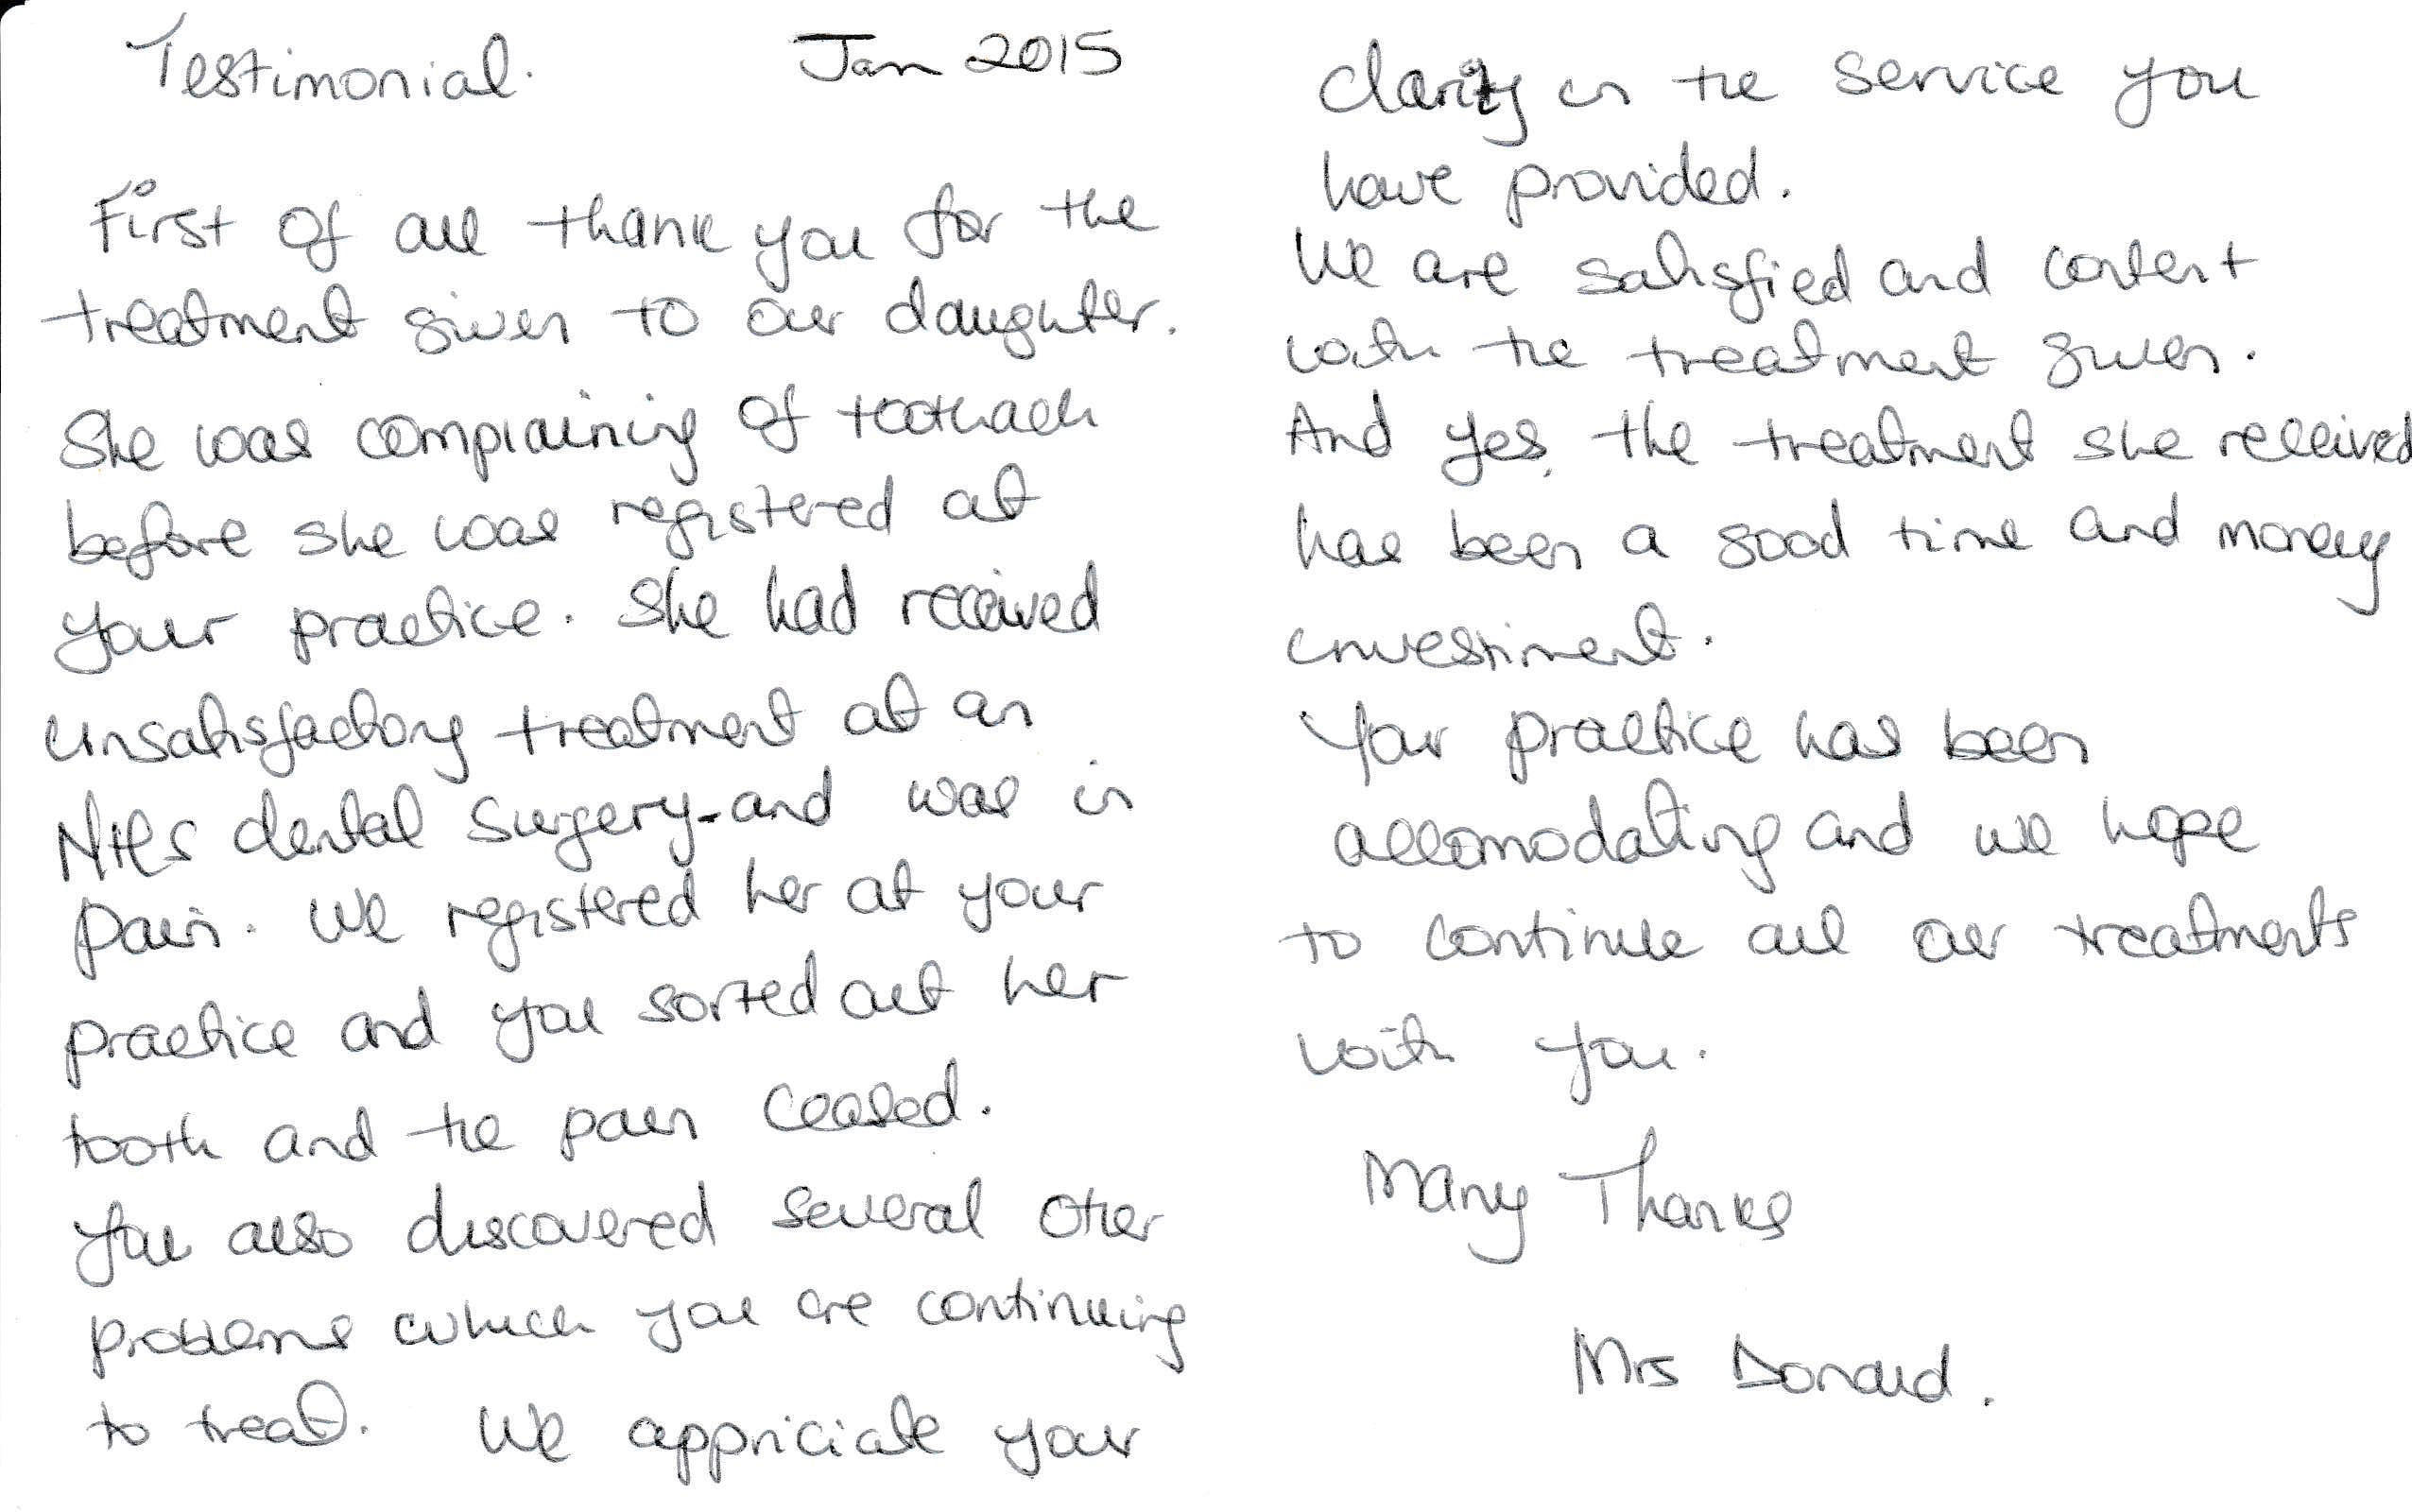 Testimonial. Jan 2015
First of all thank you for the
treatment given to our daughter.
She was complaining of toothach
before she was registered at
your practice. She had received
unsatisfactory treatment at an
NHS dental surgery-and was in
pain. We registered her at your
practice and you sorted out her
tooth and the pain ceased.
You also discovered several other
problems which you are continuing
to treat. We appriciate your
clarity in the service you
have provided.
We are satisfied and content
with the treatment given.
And yes, the treatment she received
has been a good time and money
investiment.
Your practice has been
accomodating and we hope
to continue all our treatments
with you.
Many Thanks
Mrs Donald.